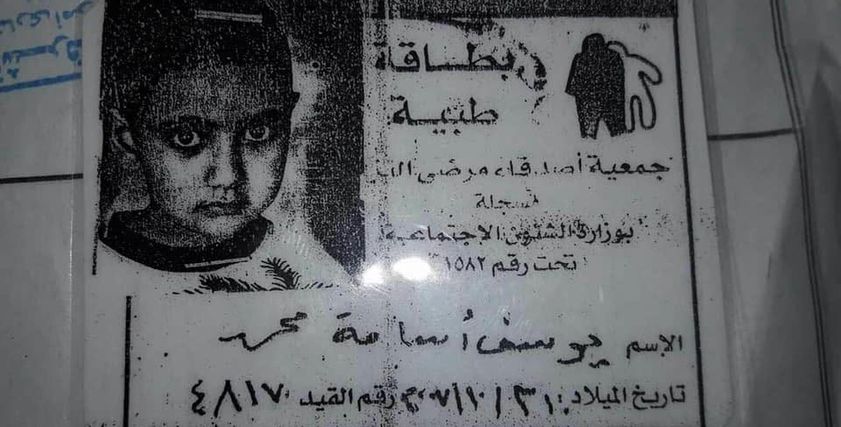 بطاقة
طبية
جمعية أصدقاء مرضى
مسجلة
بوزارة الشئون الاجتماعية
تحت رقم ١٥٨٢
الإسم يوسف أسامة محمد
تاريخ الميلاد: ٣١/١٠/٢٠٠٧ رقم القيد ٤٨١٧٠